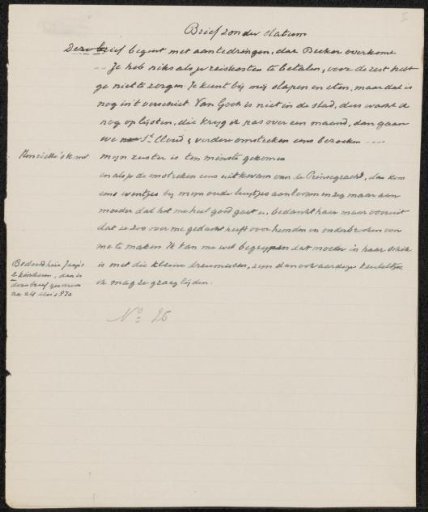 Brief zonder datum
Deze brief begint met aandringen, dat Becker overkome
-- Je heb niks als je reiskosten te betalen, voor de rest hoef
ge niet te zorgen Je kunt bij mij slapen en eten, maar dat is
nog in 't verschiet Van Gogh is niet in de stad, dus wacht de
nog op lijsten, die krijg ik pas over een maand, dan gaan
we St. Cloud & verdere omstreken eens bezoeken ----
mijn zuster is ten minste gekomen
en als je de omstreken eens uit kwam van de Prinsegracht, dan kom
eens eventjes bij mijn oude luitjes aanloven en zeg maar aan
moeder dat het me heel goed gaat en bedankt haar maar vooruit
dat ze zoo voor me gedacht heeft over hemden en onderbroeken voor
me te maken Ik kan me wel begrijpen dat moeder in haar schik
is met die kleine dreumessen, een dan ook aardige keuteltjes
ik mag ze graag lijden.
Henriëtte is kind
Bedoeld zijn Jansje's
kinderen, dan is
deze brief geschreven
No 26